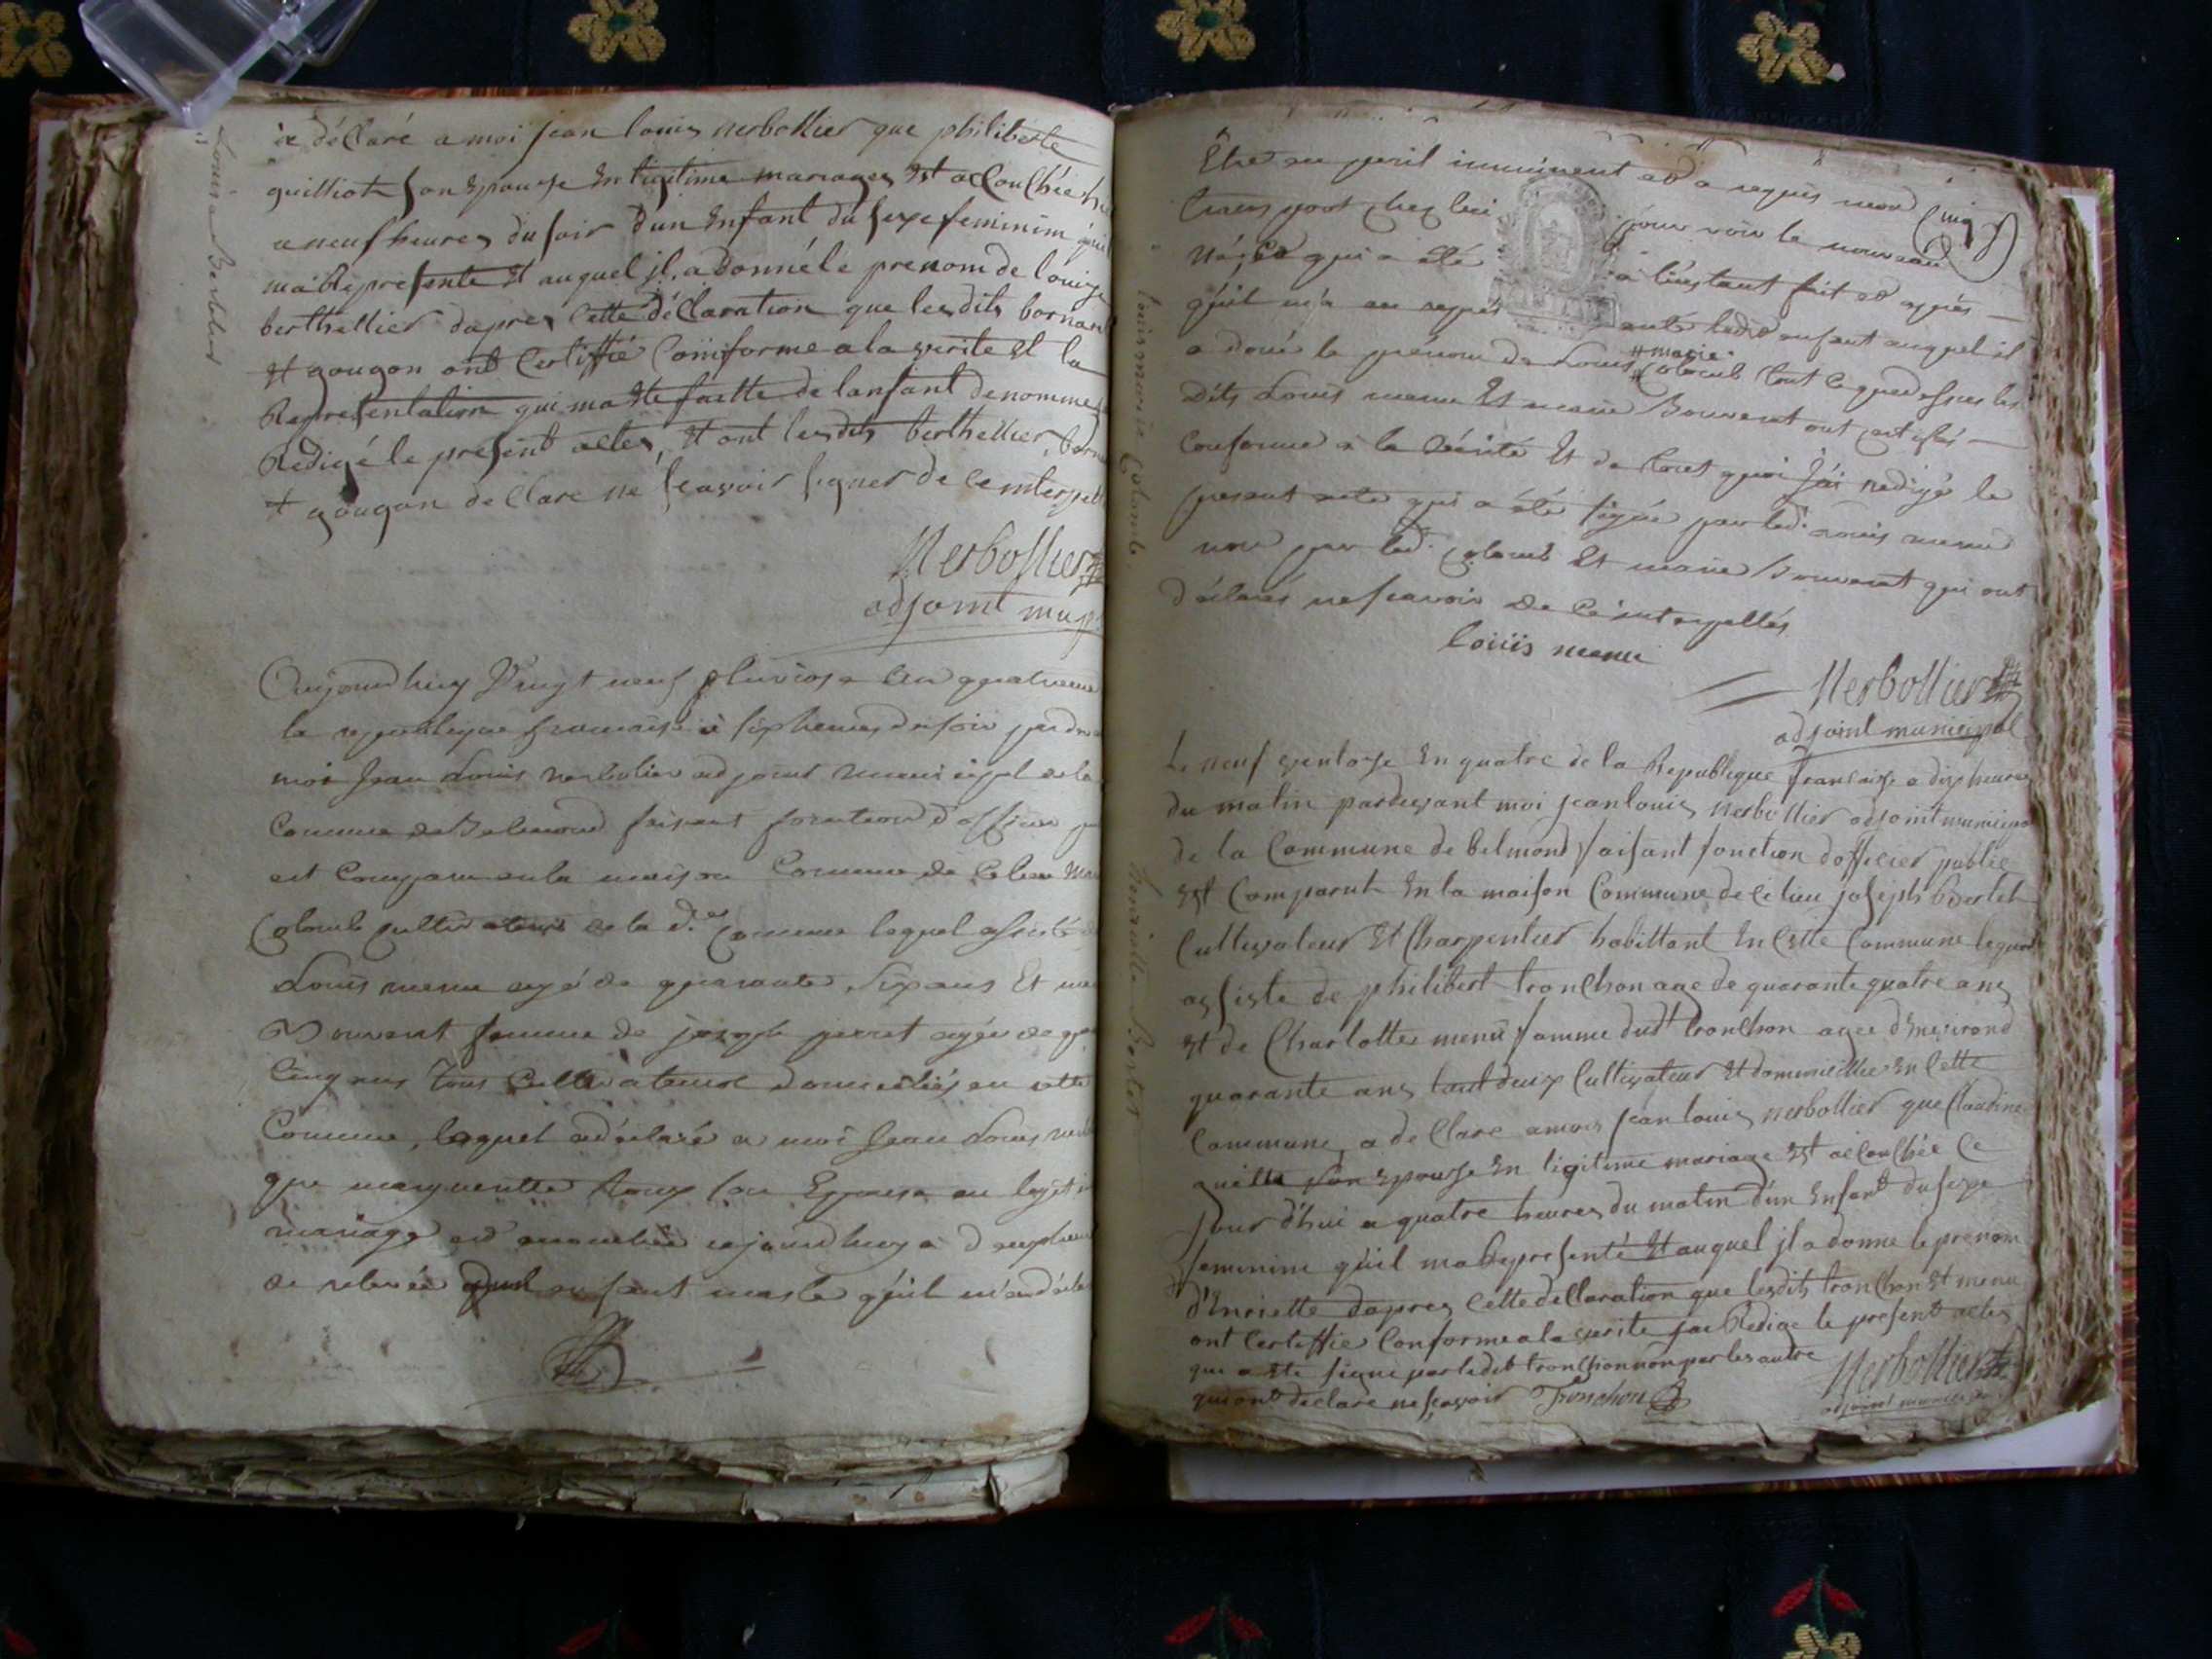 Louise Bertelier
à déClaré a moi jean louis nerbollier que philiberte
guilliot son Epouse En legitime mariage Est acConChée
a neuf heures du soir d'un Enfant du sexe feminim
ma Representé Et auquel jl a donné le prenom de louise
berthellier dapres Cette déClaration que les dits bornar
Et gougon ont Certiffié Conforme a la verite Et la
Representation qui ma ete faitte de lanfant denommé
Redigé le present actes, Et ont les dits berthellier, born
Et gougon de Clare ne sçavoir signer de Ce
Nerbollier
adjoint mup
Aujourdhuy Vingt neuf pluviose an quatrieme
la republique francaise à six heures du soir par d
moi Jean Louis nerbolier adjoint municipal de la
Commune de Belmond faisant fonction d'officier p
est Comparu en la maison Commune de Ce lieu
Colomb cultivateur de la d.e Commune lequel assisté d
Louis menu agé de quarante six ans Et
Bouvent femme de joseph perret agée de
Cinq ans tous Cultivateurs domiciliés en cette
Commune, lequel a déclaré a moi Jean Louis
que margueritte Roux son Epouse en legiti
mariage est acouchée aujourdhuy à d
de relevée d'un enfant masle qu'il
Être au peril imminent et a requis mon
Cinq
transport chez lui pour voir le nouveau
né, Ce qui a été à l'instant fait et après
qu'il m'a eu ledit enfant auquel il
# marie
a doné le prénom de Louis # Colomb tout ce que dessus les
dits Louis menu Et marie Bouvent ont certifié
Conforme à la Vérité Et de tout quoi J'ai redigé le
present acte qui a été signé par led. Louis menu
non par led. Colomb Et marie Bouvent qui ont
déclarés ne scavoir de Ce interpellés
louis menu
Nerbollier
adjoint municipal
louis marie Colomb
Le neuf ventose En quatre de la Republique francaise a dix heures
du matin pardevant moi jean louis nerbollier adjoint municipa
de la Commune de belmond faisant fonction dofficier public
Est Comparut En la maison Commune de Ce lieu joseph bertet
Cultivateur Et Charpentier habittant En Cette Commune lequel
assiste de philibert tronChon age de quarante quatre ans
Et de Charlotte menu famme dudt tronChon agee d'Environd
quarante ans tout deux Cultivateur Et domicillie En Cette
Commune, a de Clare a moi jean louis nerbollier que Claudine
son Epouse En legitime mariage Est acConChée Ce
jour d'hui a quatre heures du matin d'un Enfant du sexe
feminim qu'il ma Representé Et auquel jl a donne le prenom
d'Enriette dapres Cette deClaration que les dits tronChon Et menu
ont Certiffie Conforme a la verite jai Redige le present actes
qui a ete signe par le dit tronChon non par les autre
qui ont declare ne sçavoir Tronchon
Nerbollier
adjoint municipal
henriette Bertet